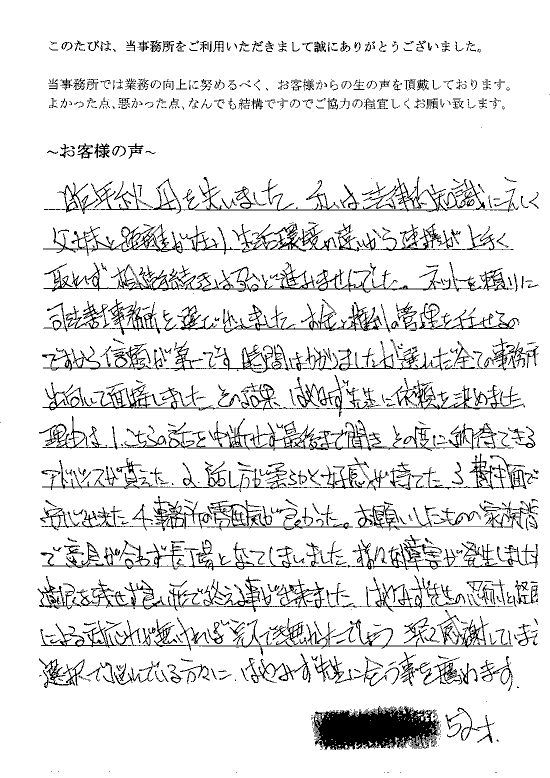 このたびは、当事務所をご利用いただきまして誠にありがとうございました。
当事務所では業務の向上に努めるべく、お客様からの生の声を頂戴しております。
よかった点、悪かった点、なんでも結構ですのでご協力の程宜しくお願い致します。
～お客様の声～
昨年秋 母を失いました。私は法律的知識に乏しく
父、妹と距離が在り、生活環境の違いから連携が上手く
取れず 相続手続きは殆ど進みませんでした。ネットを頼りに
司法書士事務所を選び出しました。お金と権利の管理を任せるの
ですから信頼が第一です。時間はかかりましたが選んだ全ての事務所
出向いて面接しました。その結果、はやみず先生に依頼を決めました。
理由は、1.こちらの話を中断せず最後まで聞き その度に納得できる
アドバイスが貰えた。2.話し方が柔らかく好感が持てた。3.費用面で
安心出来た 4.事務所の雰囲気が良かった。お願いしたものの家族間
で意見が合わず長丁場となってしまいました。様々な障害が発生しましたが
遺恨を残せず良い形で終える事が出来ました。はやみず先生の忍耐と経験
による対応力が無ければ完了出来無かったでしょう 深く感謝しています
選択で悩んでいる方々に、はやみず先生に会う事を薦めます。
52才.